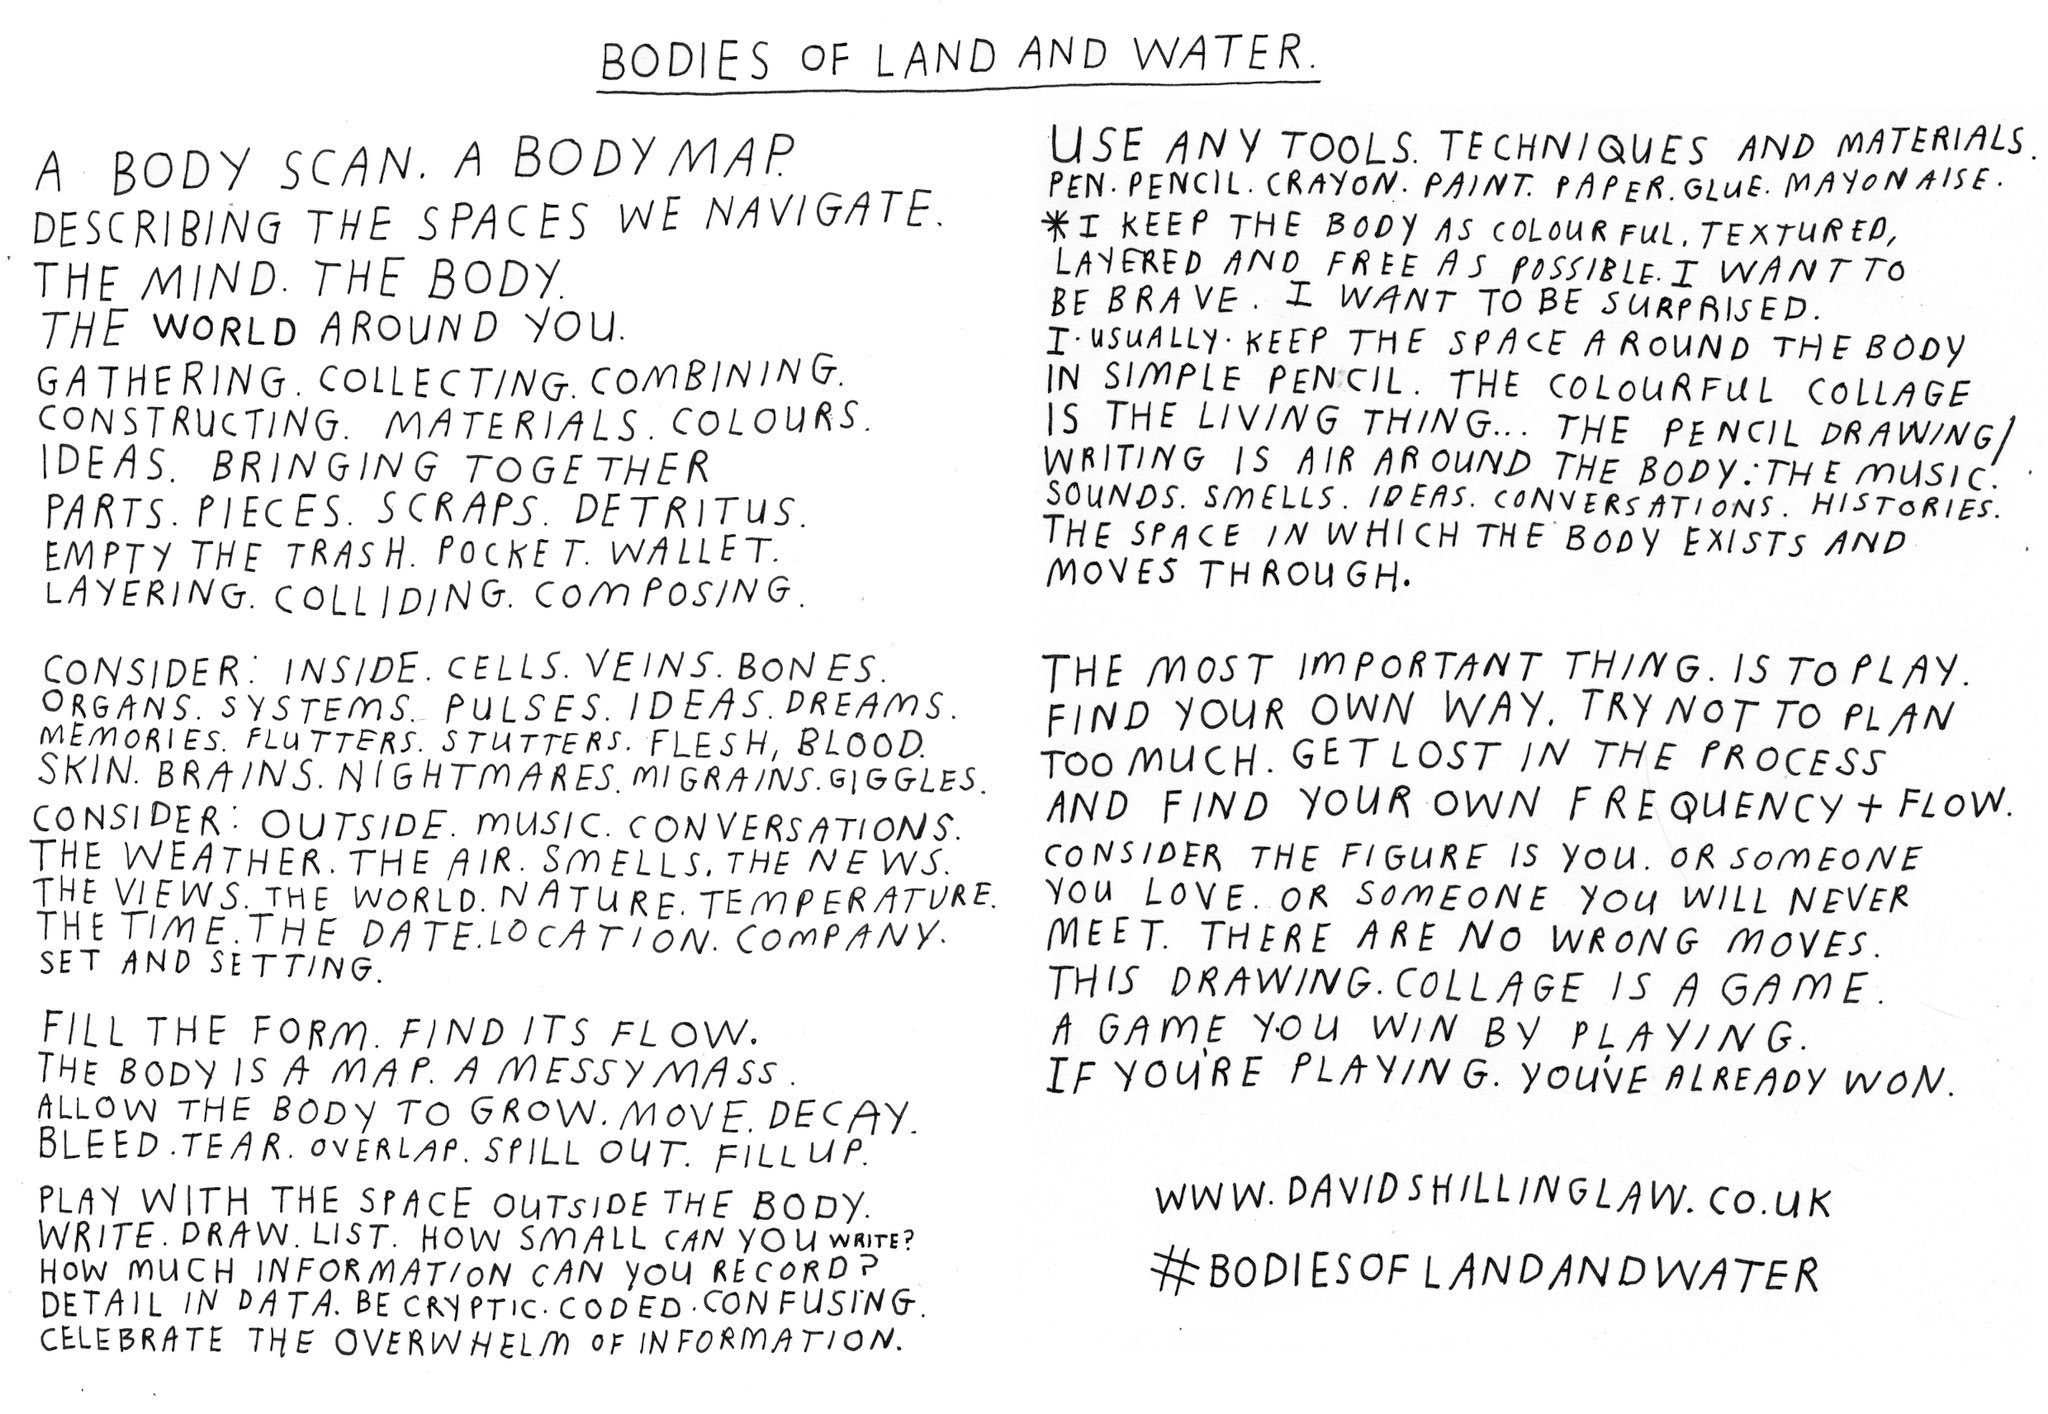 BODIES OF LAND AND WATER.
A BODY SCAN. A BODY MAP.
DESCRIBING THE SPACES WE NAVIGATE.
THE MIND. THE BODY.
THE WORLD AROUND YOU.
GATHERING. COLLECTING. COMBINING.
CONSTRUCTING. MATERIALS. COLOURS.
IDEAS. BRINGING TOGETHER
PARTS. PIECES. SCRAPS. DETRITUS.
EMPTY THE TRASH. POCKET. WALLET.
LAYERING. COLLIDING. COMPOSING.
CONSIDER: INSIDE. CELLS. VEINS. BONES.
ORGANS. SYSTEMS. PULSES. IDEAS. DREAMS.
MEMORIES. FLUTTERS. STUTTERS. FLESH, BLOOD.
SKIN. BRAINS. NIGHTMARES. MIGRAINS. GIGGLES.
CONSIDER: OUTSIDE. MUSIC. CONVERSATIONS.
THE WEATHER. THE AIR. SMELLS. THE NEWS.
THE VIEWS. THE WORLD. NATURE. TEMPERATURE.
THE TIME. THE DATE. LOCATION. COMPANY.
SET AND SETTING.
FILL THE FORM. FIND ITS FLOW.
THE BODY IS A MAP. A MESSY MASS.
ALLOW THE BODY TO GROW. MOVE. DECAY.
BLEED. TEAR. OVERLAP. SPILL OUT. FILL UP.
PLAY WITH THE SPACE OUTSIDE THE BODY.
WRITE. DRAW. LIST. HOW SMALL CAN YOU WRITE?
HOW MUCH INFORMATION CAN YOU RECORD?
DETAIL IN DATA. BE CRYPTIC. CODED. CONFUSING.
CELEBRATE THE OVERWHELM OF INFORMATION.
USE ANY TOOLS. TECHNIQUES AND MATERIALS.
PEN. PENCIL. CRAYON. PAINT. PAPER. GLUE. MAYONAISE.
*I KEEP THE BODY AS COLOURFUL, TEXTURED,
LAYERED AND FREE AS POSSIBLE. I WANT TO
BE BRAVE. I WANT TO BE SURPRISED.
I. USUALLY. KEEP THE SPACE AROUND THE BODY
IN SIMPLE PENCIL. THE COLOURFUL COLLAGE
IS THE LIVING THING... THE PENCIL DRAWING/
WRITING IS AIR AROUND THE BODY: THE MUSIC.
SOUNDS. SMELLS. IDEAS. CONVERSATIONS. HISTORIES.
THE SPACE IN WHICH THE BODY EXISTS AND
MOVES THROUGH.
THE MOST IMPORTANT THING. IS TO PLAY.
FIND YOUR OWN WAY. TRY NOT TO PLAN
TOO MUCH. GET LOST IN THE PROCESS
AND FIND YOUR OWN FREQUENCY + FLOW.
CONSIDER THE FIGURE IS YOU. OR SOMEONE
YOU LOVE. OR SOMEONE YOU WILL NEVER
MEET. THERE ARE NO WRONG MOVES.
THIS DRAWING. COLLAGE IS A GAME.
A GAME YOU WIN BY PLAYING.
IF YOU'RE PLAYING. YOU'VE ALREADY WON.
WWW.DAVIDSHILLINGLAW.CO.UK
#BODIESOFLANDANDWATER